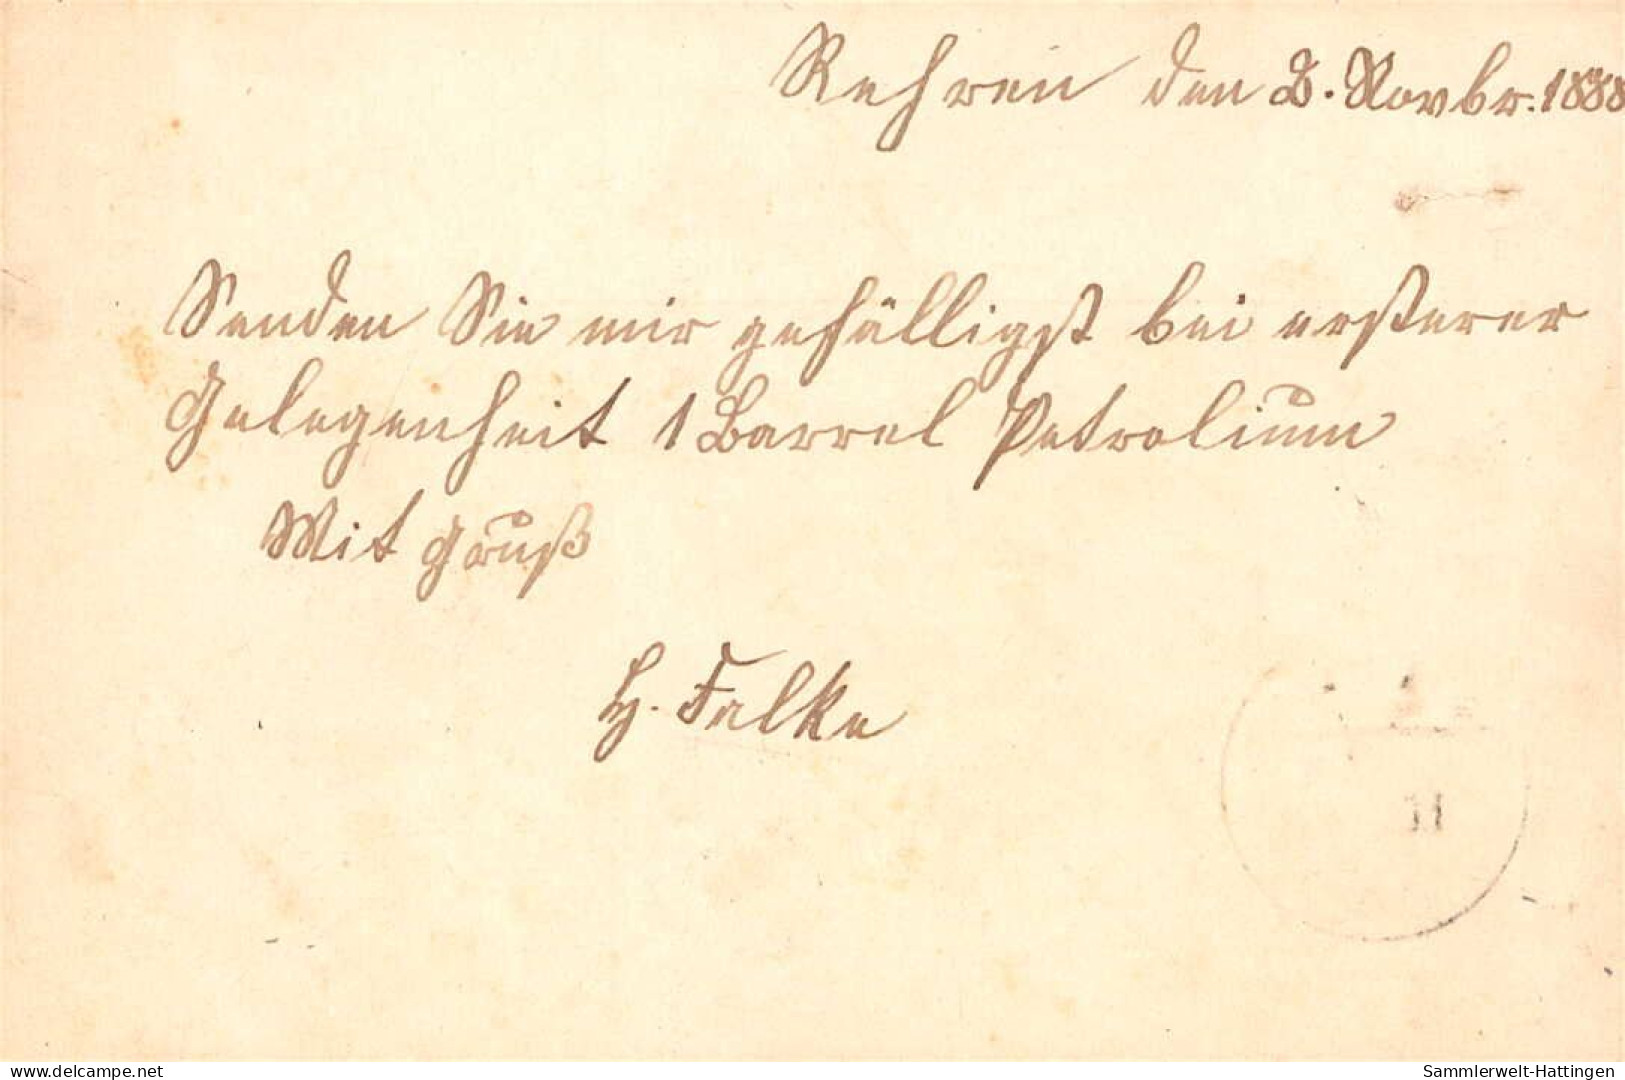 Rehren den 2. Novbr. 1888
Senden Sie mir gefälligst bei ersterer
Gelegenheit 1 Barrel Petrolium
Mit Gruß
H. Falke
11
www.delcampe.net
Sammlerwelt-Hattingen